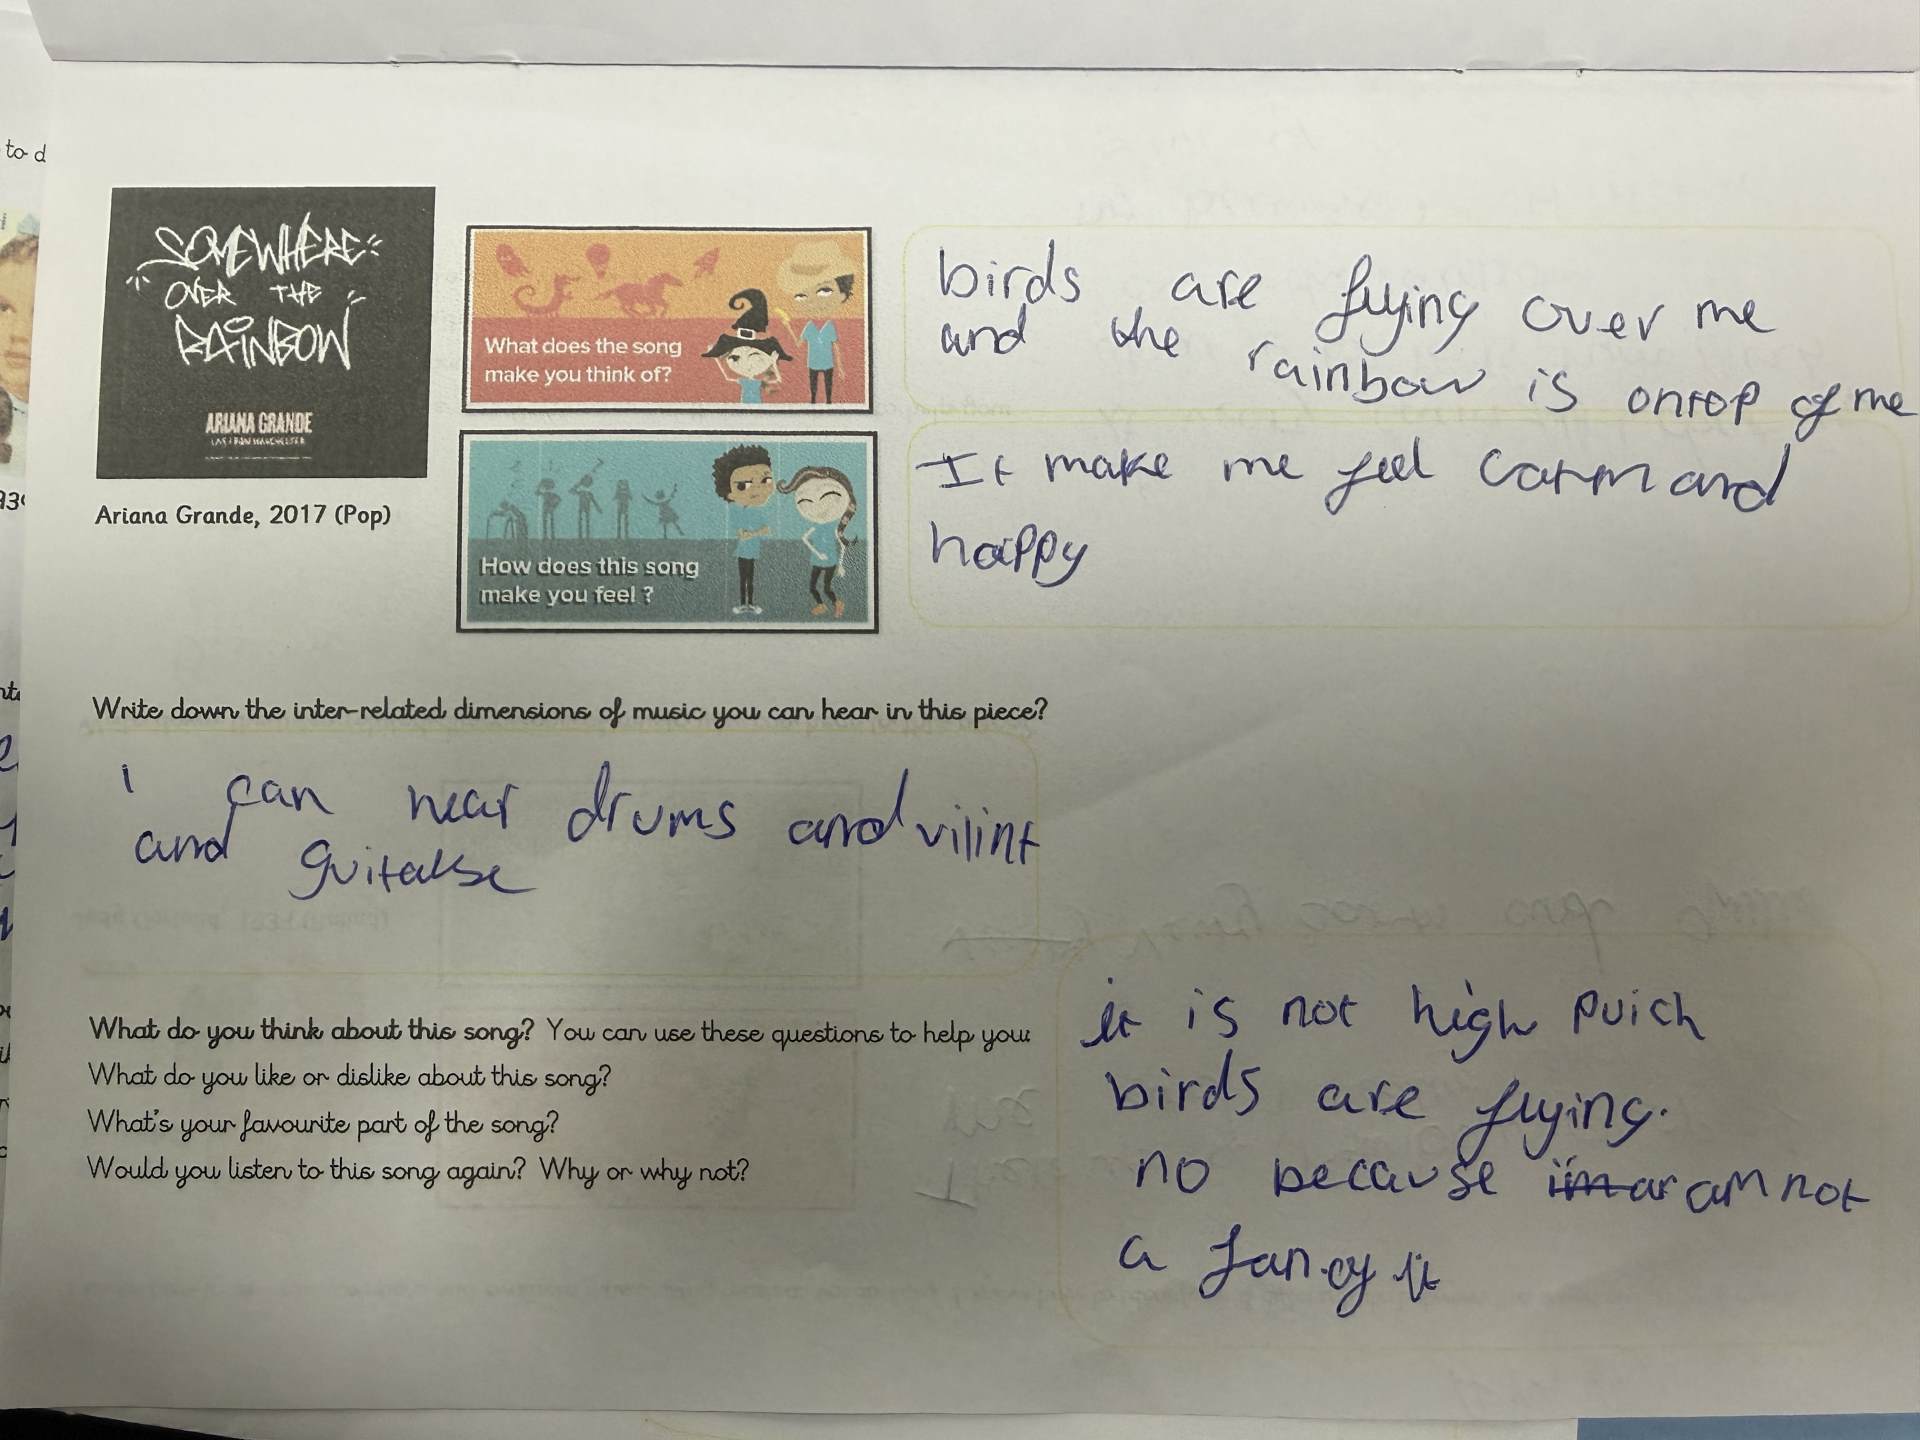 to d
SOMEWHERE
OVER THE
RAINBOW
ARIANA GRANDE
LIVE FROM MANCHESTER
Ariana Grande, 2017 (Pop)
What does the song
make you think of?
birds are flying over me
and the rainbow is ontop of me
How does this song
make you feel ?
It make me feel carm and
happy
Write down the inter-related dimensions of music you can hear in this piece?
i can hear drums and vilint
and guitakse
What do you think about this song? You can use these questions to help you:
What do you like or dislike about this song?
What's your favourite part of the song?
Would you listen to this song again? Why or why not?
it is not high puich
birds are flying.
no because am not
a fan.of it